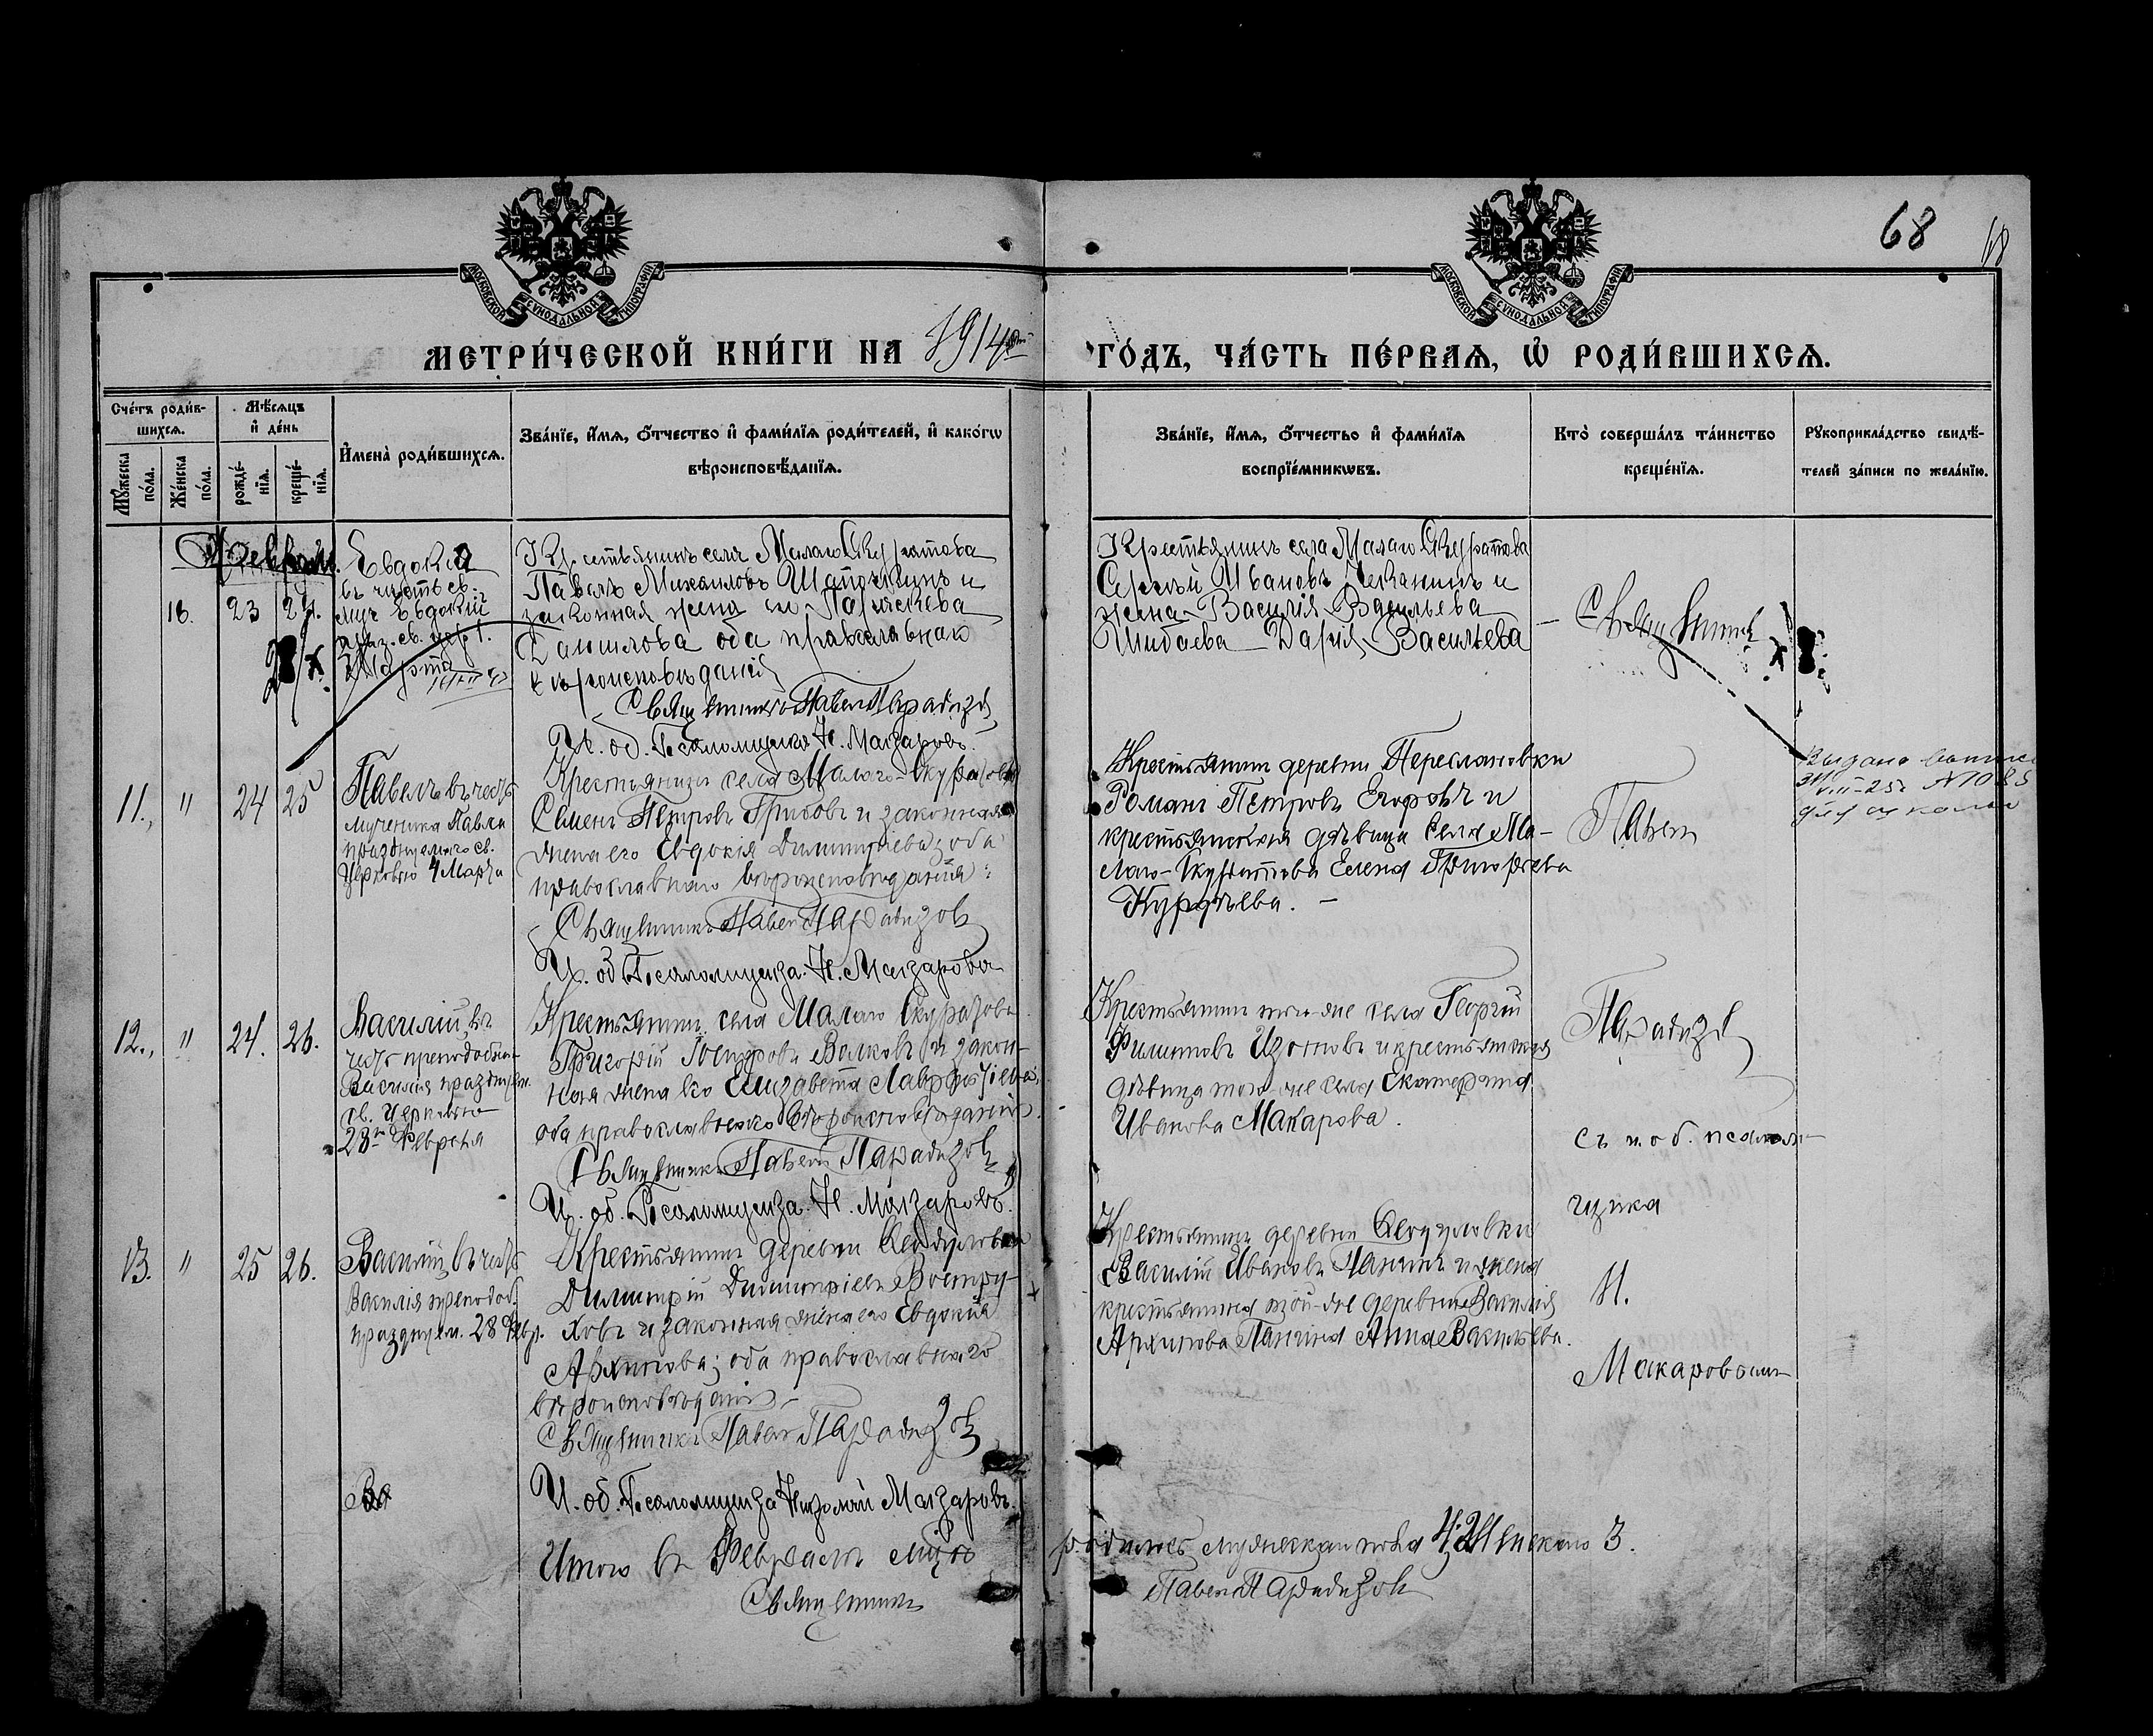 68
68
МОСКОВСКОЙ СУНОДАЛЬНОЙ ТИПОГРАФІИ
МОСКОВСКОЙ СУНОДАЛЬНОЙ ТИПОГРАФІИ
МЕТРИ́ЧЕСКОЙ КНИ́ГИ НА 1914
ГО́ДЪ, ЧА́СТЬ ПЕ́РВАЯ, Ѡ҆ РОДИ́ВШИХСѦ.
Сче́тъ роди́в-
шихсѧ.
Мꙋ́жеска по́ла.
Же́нска по́ла.
Мѣ́сѧцъ
и҆ де́нь
рожде́-
нїѧ.
креще́-
нїѧ.
И҆мена̀ роди́вшихсѧ.
Зва́нїе, и҆́мѧ, ѻ҆́тчество и҆ фами́лїѧ роди́телей, и҆ како́гѡ
вѣроисповѣ́данїѧ.
Зва́нїе, и҆́мѧ, ѻ҆́тчество и҆ фами́лїѧ
воспрїе́мникѡвъ.
Кто̀ соверша́лъ та́инство
креще́нїѧ.
Рꙋкоприкла́дство свидѣ́-
телей за́писи по жела́нїю.
Февраль
23
Евдокія
въ честь св.
муч. Евдокіи
праз. св. церк.
1 Марта
Крестьянинъ села Малаго Скуратова
Павелъ Михаиловъ и
законная жена его
Данилова оба православнаго
вѣроисповѣданія
Священникъ Павелъ Парадизовъ
И. об. Псаломщика Н. Макаровъ.
Крестьянинъ села Малаго Скуратова
Сергѣй Ивановъ и
жена Василія Васильева
Дарія Васильева
Священникъ
11. " 24 25
Павелъ въ честь
мученика Павла
празднуемаго св.
Церковью 4 Марта
Крестьянинъ села Малаго-Скуратова
Семенъ Петровъ Грибовъ и законная
жена его Евдокія Димитріева; оба
православнаго вѣроисповѣданія.
Священникъ Павелъ Парадизовъ
И. об. Псаломщика Н. Макаровъ
Крестьянинъ деревни Переслановки
Романъ Петровъ Егоровъ и
крестьянская дѣвица села Ма-
лаго-Скуратова Елена Григорьева
Павелъ
Выдана выпись
№ 1085
для школы
12. " 24. 26.
Василій, въ
честь преподобна-
Василія празднуем.
св. Церковью
28го Февраля
Крестьянинъ села Малаго Скуратова
Григорій Волковъ и закон-
ная жена его Елизавета Лаврентьева,
оба православнаго вѣроисповѣданія.
Священникъ Павелъ Парадизовъ
И. об. Псаломщика Н. Макаровъ.
Крестьянинъ того-же села Георгій
Филипповъ Изотовъ и крестьянская
дѣвица того-же села Екатерина
Иванова Макарова.
Парадизовъ
съ и. об. псалом-
щика
13. " 25 26.
Василій, въ честь
Василія преподоб.
празднуем. 28 Февр.
Крестьянинъ деревни
Димитрій Димитріевъ Востру-
ховъ и законная жена его Евдокія
Архипова; оба православнаго
вѣроисповѣданія.
Священникъ Павелъ Парадизовъ
И. об. Псаломщика Николай Макаровъ.
Крестьянинъ деревни
Василій Ивановъ Панинъ и жена
крестьянина той-же деревни Василія
Архипова Панина Анна Васильева.
Н.
Макаровымъ
Итого въ Февралѣ мцѣ
родилось мужескаго пола 4, Женскаго 3.
Священникъ
Павелъ Парадизовъ